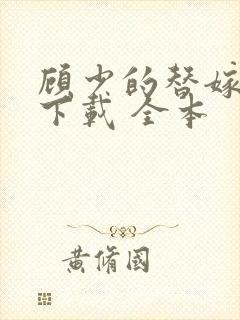 顾少的替嫁
下载 全本
黄脩国